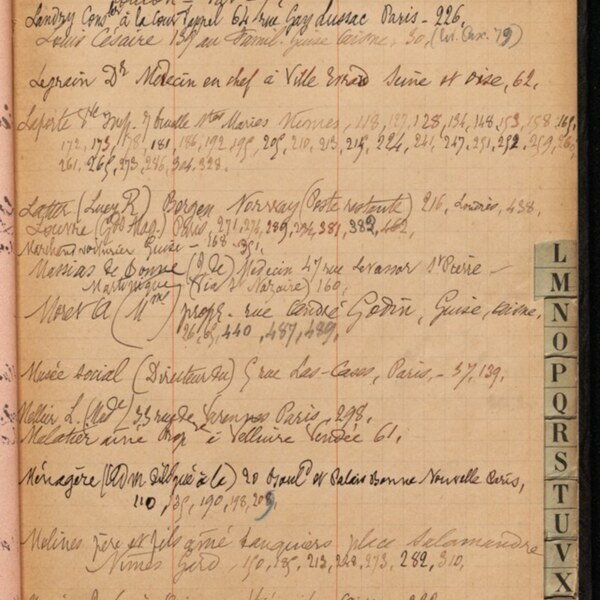 Landry Cons.er à la Cour d'appel 64 rue Gay Lussac Paris - 226,
Louis Césaire 139 au Famil. Guise Aisne, 30,
Legrain Dr Médecin en chef à Ville Evrard Seine et Oise, 62.
Laporte Vve 7 ruelle Stes Maries Nimes, 118, 127, 128, 134, 148, 153, 158, 169,
172, 173, 178, 181, 186, 192, 195, 205, 210, 213, 215, 224, 241, 247, 251, 252, 259,
261, 265, 273, 286, 304, 328.
(Lucy R) Bergen Norway (Poste restante) 216, Londres, 438,
Louvre (Gds Mag.) Paris, 271, 274, 289, 294, 381, 382, 462,
Marchand voiturier Guise - 168, 351,
Massias de Bonne (P de) Médecin 47 rue Levassor St Pierre -
Martinique (via St Nazaire) 160,
Moret A (Mme) propr. rue André Godin, Guise, Aisne,
26, 65, 440, 487, 489,
Musée social (Directeur du) 5 rue Las-Cases, Paris, - 37, 139.
L. 33 rue de Varennes Paris, 298.
Malatier aîné à Velluire Vendée 61.
Ménagère (Adm délégué à la) 20 Boulrd et Palais Bonne Nouvelle Paris,
110, 135, 190, 198, 209,
Molines père et fils aîné banquiers place Salamandre
Nimes Gard - 150, 185, 213, 228, 273, 282, 310,
L
M
N
O
P
Q
R
S
T
U
V
X